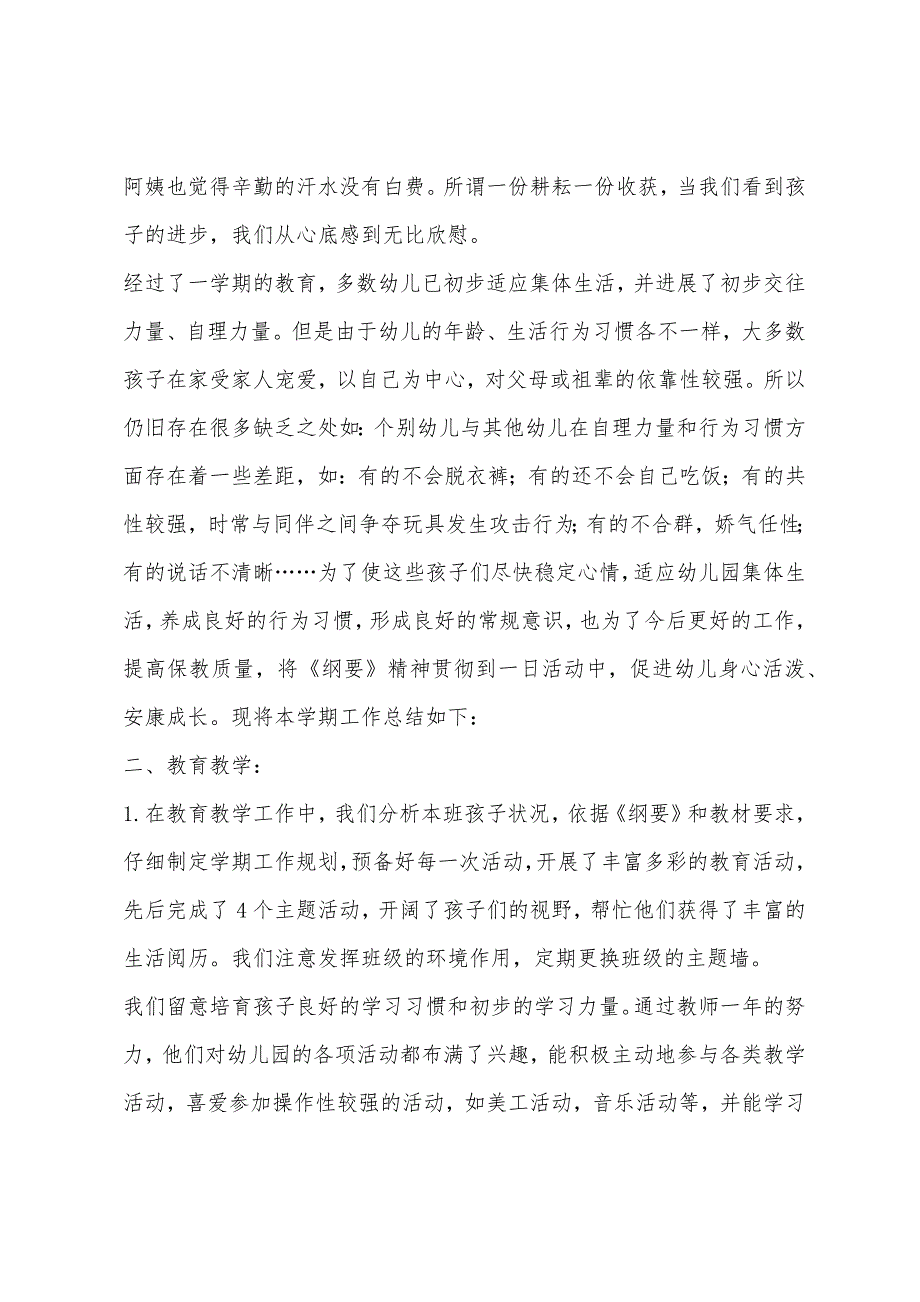 阿姨也觉得辛勤的汗水没有白费。所谓一份耕耘一份收获，当我们看到孩
子的进步，我们从心底感到无比欣慰。
经过了一学期的教育，多数幼儿已初步适应集体生活，并进展了初步交往
力量、自理力量。但是由于幼儿的年龄、生活行为习惯各不一样，大多数
孩子在家受家人宠爱，以自己为中心，对父母或祖辈的依靠性较强。所以
仍旧存在很多缺乏之处如：个别幼儿与其他幼儿在自理力量和行为习惯方
面存在着一些差距，如：有的不会脱衣裤；有的还不会自己吃饭；有的共
性较强，时常与同伴之间争夺玩具发生攻击行为；有的不合群，娇气任性；
有的说话不清晰……为了使这些孩子们尽快稳定心情，适应幼儿园集体生
活，养成良好的行为习惯，形成良好的常规意识，也为了今后更好的工作，
提高保教质量，将《纲要》精神贯彻到一日活动中，促进幼儿身心活泼、
安康成长。现将本学期工作总结如下：
二、教育教学：
1.在教育教学工作中，我们分析本班孩子状况，依据《纲要》和教材要求，
仔细制定学期工作规划，预备好每一次活动，开展了丰富多彩的教育活动，
先后完成了 4 个主题活动，开阔了孩子们的视野，帮忙他们获得了丰富的
生活阅历。我们注意发挥班级的环境作用，定期更换班级的主题墙。
我们留意培育孩子良好的学习习惯和初步的学习力量。通过教师一年的努
力，他们对幼儿园的各项活动都布满了兴趣，能积极主动地参与各类教学
活动，喜爱参加操作性较强的活动，如美工活动，音乐活动等，并能学习